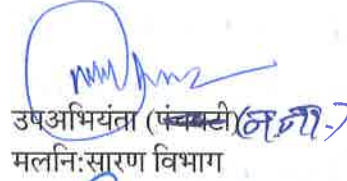 उपअभियंता (पंचवटी)
मलनि:सारण विभाग